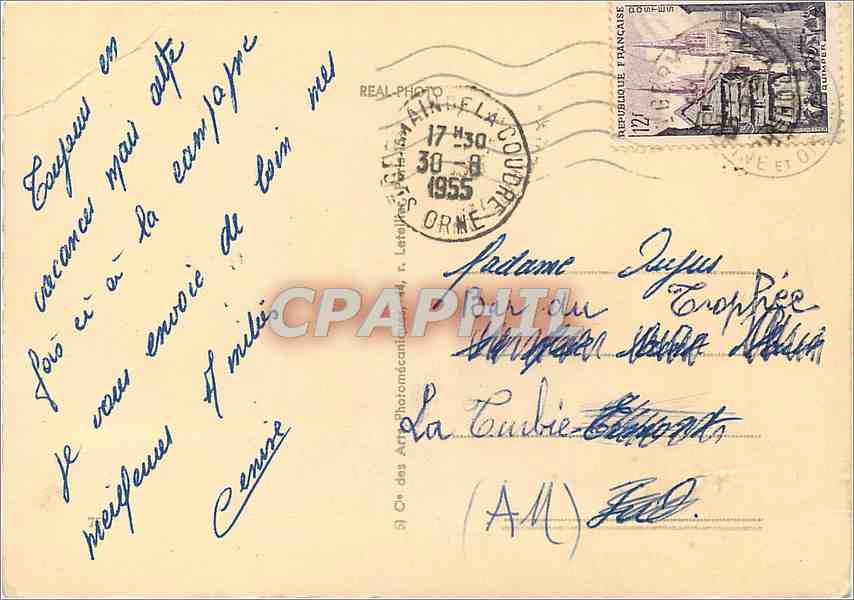 Toujours en
vacances mais cette
fois ci à la campagne
je vous envoie de loin mes
meilleures Amitiés
Denise
REAL-PHOTO
ST GERMAIN DE LA COUDRE
17 H 30
30 -8
1955
ORNE
REPUBLIQUE FRANÇAISE
POSTES
12F
QUIMPER
Madame Dufus
Bar du Trophée
La Turbie
(AM)
5) Cie des Arts Photomécaniques, 44, r. Letellier, Paris-15e
CPAPHIL